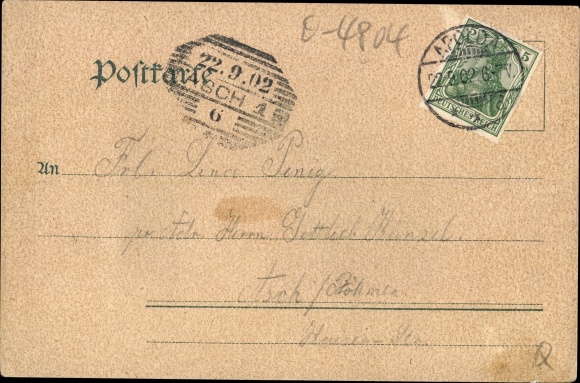 O-4804
Postkarte
22.9.02
ASCH 1
6
APOLDA
22.9.02.6-7 N
5
DEUTSCHES REICH
An
Frl. Lina Penig
Herrn Gottlieb Künzel
Asch / Böhmen
Q